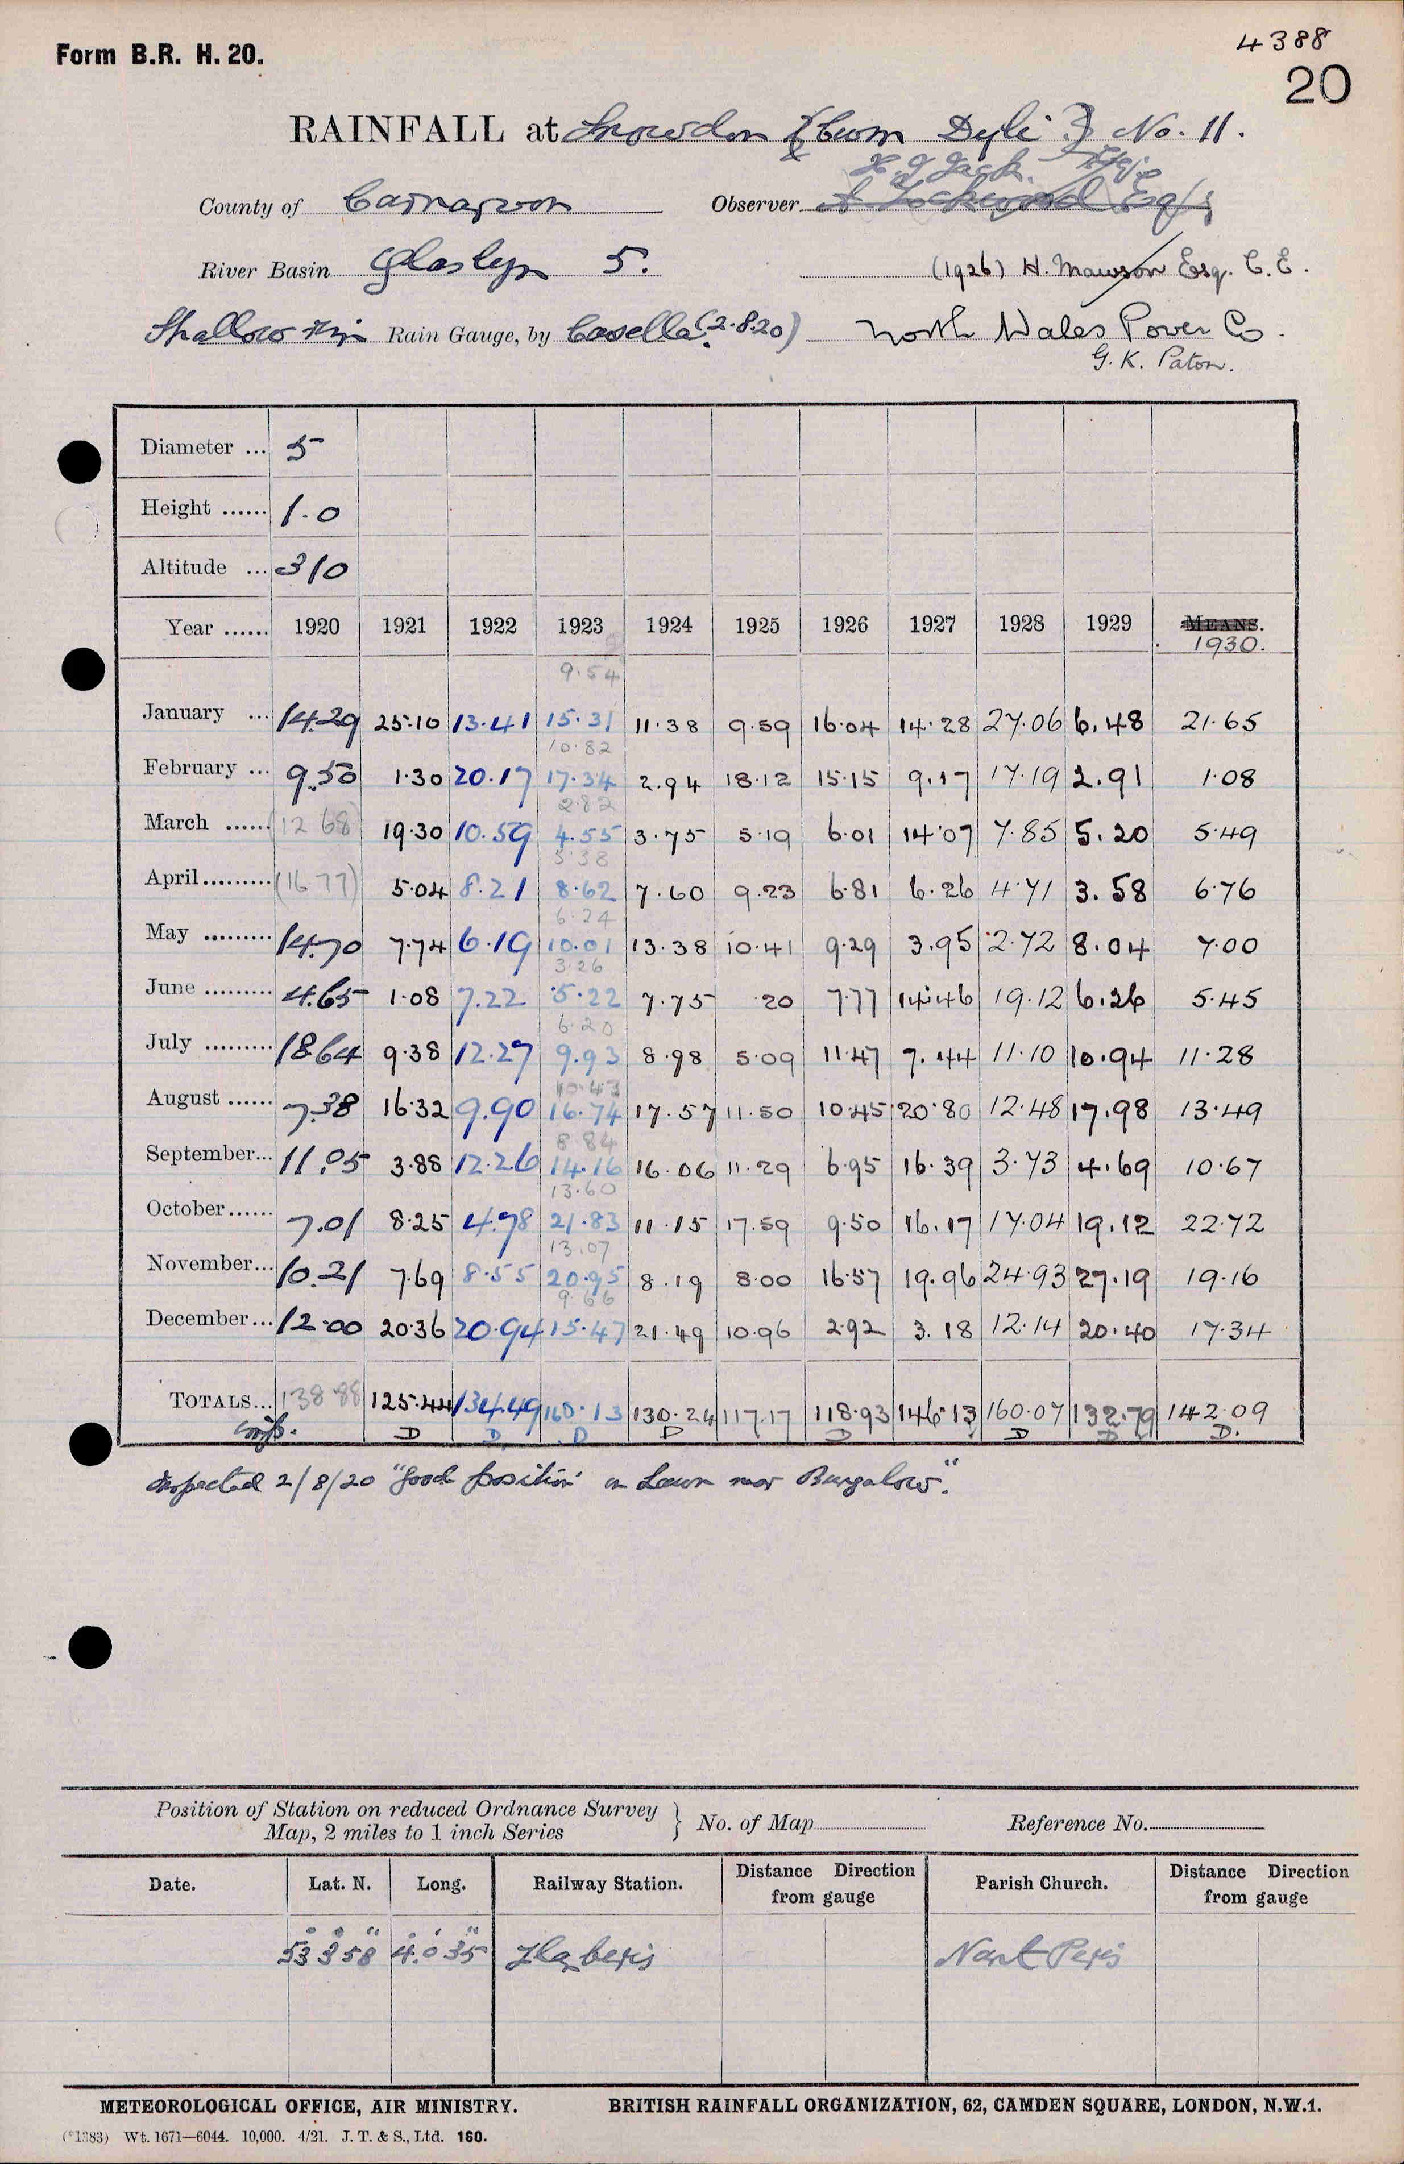 Form B.R. H. 20.
4388
20
RAINFALL at Snowdon (Cwm Dyli) No. 11.
H. G. Jack
County of Carnarvon Observer A Lockwood Esq
River Basin Glaslyn 5. (1926) H. Mawson Esq. C.E.
Shallow Rim Rain Gauge, by Casella (2.8.20) North Wales Power Co.
G. K. Paton.
Diameter ... 5
Height ...... 1.0
Altitude ... 310
Year ...... 1920 1921 1922 1923 1924 1925 1926 1927 1928 1929 MEANS.
1930.
9.54
January ... 14.29 25.10 13.41 15.31 11.38 9.59 16.04 14.28 27.06 6.48 21.65
10.82
February ... 9.50 1.30 20.17 17.34 2.94 18.12 15.15 9.17 17.19 2.91 1.08
2.82
March ...... (12 68) 19.30 10.59 4.55 3.75 5.19 6.01 14.07 7.85 5.20 5.49
5.38
April ......... (16 77) 5.04 8.21 8.62 7.60 9.23 6.81 6.26 4.71 3.58 6.76
6.24
May ......... 14.70 7.74 6.19 10.01 13.38 10.41 9.29 3.95 2.72 8.04 7.00
3.26
June ......... 4.65 1.08 7.22 5.22 7.75 .20 7.77 14.46 19.12 6.26 5.45
6.20
July ......... 18.64 9.38 12.27 9.93 8.98 5.09 11.47 7.44 11.10 10.94 11.28
10.43
August ...... 7.38 16.32 9.90 16.74 17.57 11.50 10.45 20.80 12.48 17.98 13.49
8.84
September... 11.05 3.88 12.26 14.16 16.06 11.29 6.95 16.39 3.73 4.69 10.67
13.60
October ...... 7.01 8.25 4.78 21.83 11.15 17.59 9.50 16.17 17.04 19.12 22.72
13.07
November... 10.21 7.69 8.55 20.95 8.19 8.00 16.57 19.96 24.93 27.19 19.16
9.66
December... 12.00 20.36 20.94 15.47 21.49 10.96 2.92 3.18 12.14 20.40 17.34
TOTALS... 138 88 125.44 134.49 160.13 130.24 117.17 118.93 146.13 160.07 132.79 142.09
D D D D D D D D.
Inspected 2/8/20 "Good position on Lawn near Bungalow."
Position of Station on reduced Ordnance Survey
Map, 2 miles to 1 inch Series } No. of Map Reference No.
Date. Lat. N. Long. Railway Station. Distance Direction from gauge Parish Church. Distance Direction from gauge
53° 3' 58" 4° 0' 35" Llanberis Nant Peris
METEOROLOGICAL OFFICE, AIR MINISTRY. BRITISH RAINFALL ORGANIZATION, 62, CAMDEN SQUARE, LONDON, N.W.1.
(*1383) Wt. 1671—6044. 10,000. 4/21. J. T. & S., Ltd. 160.